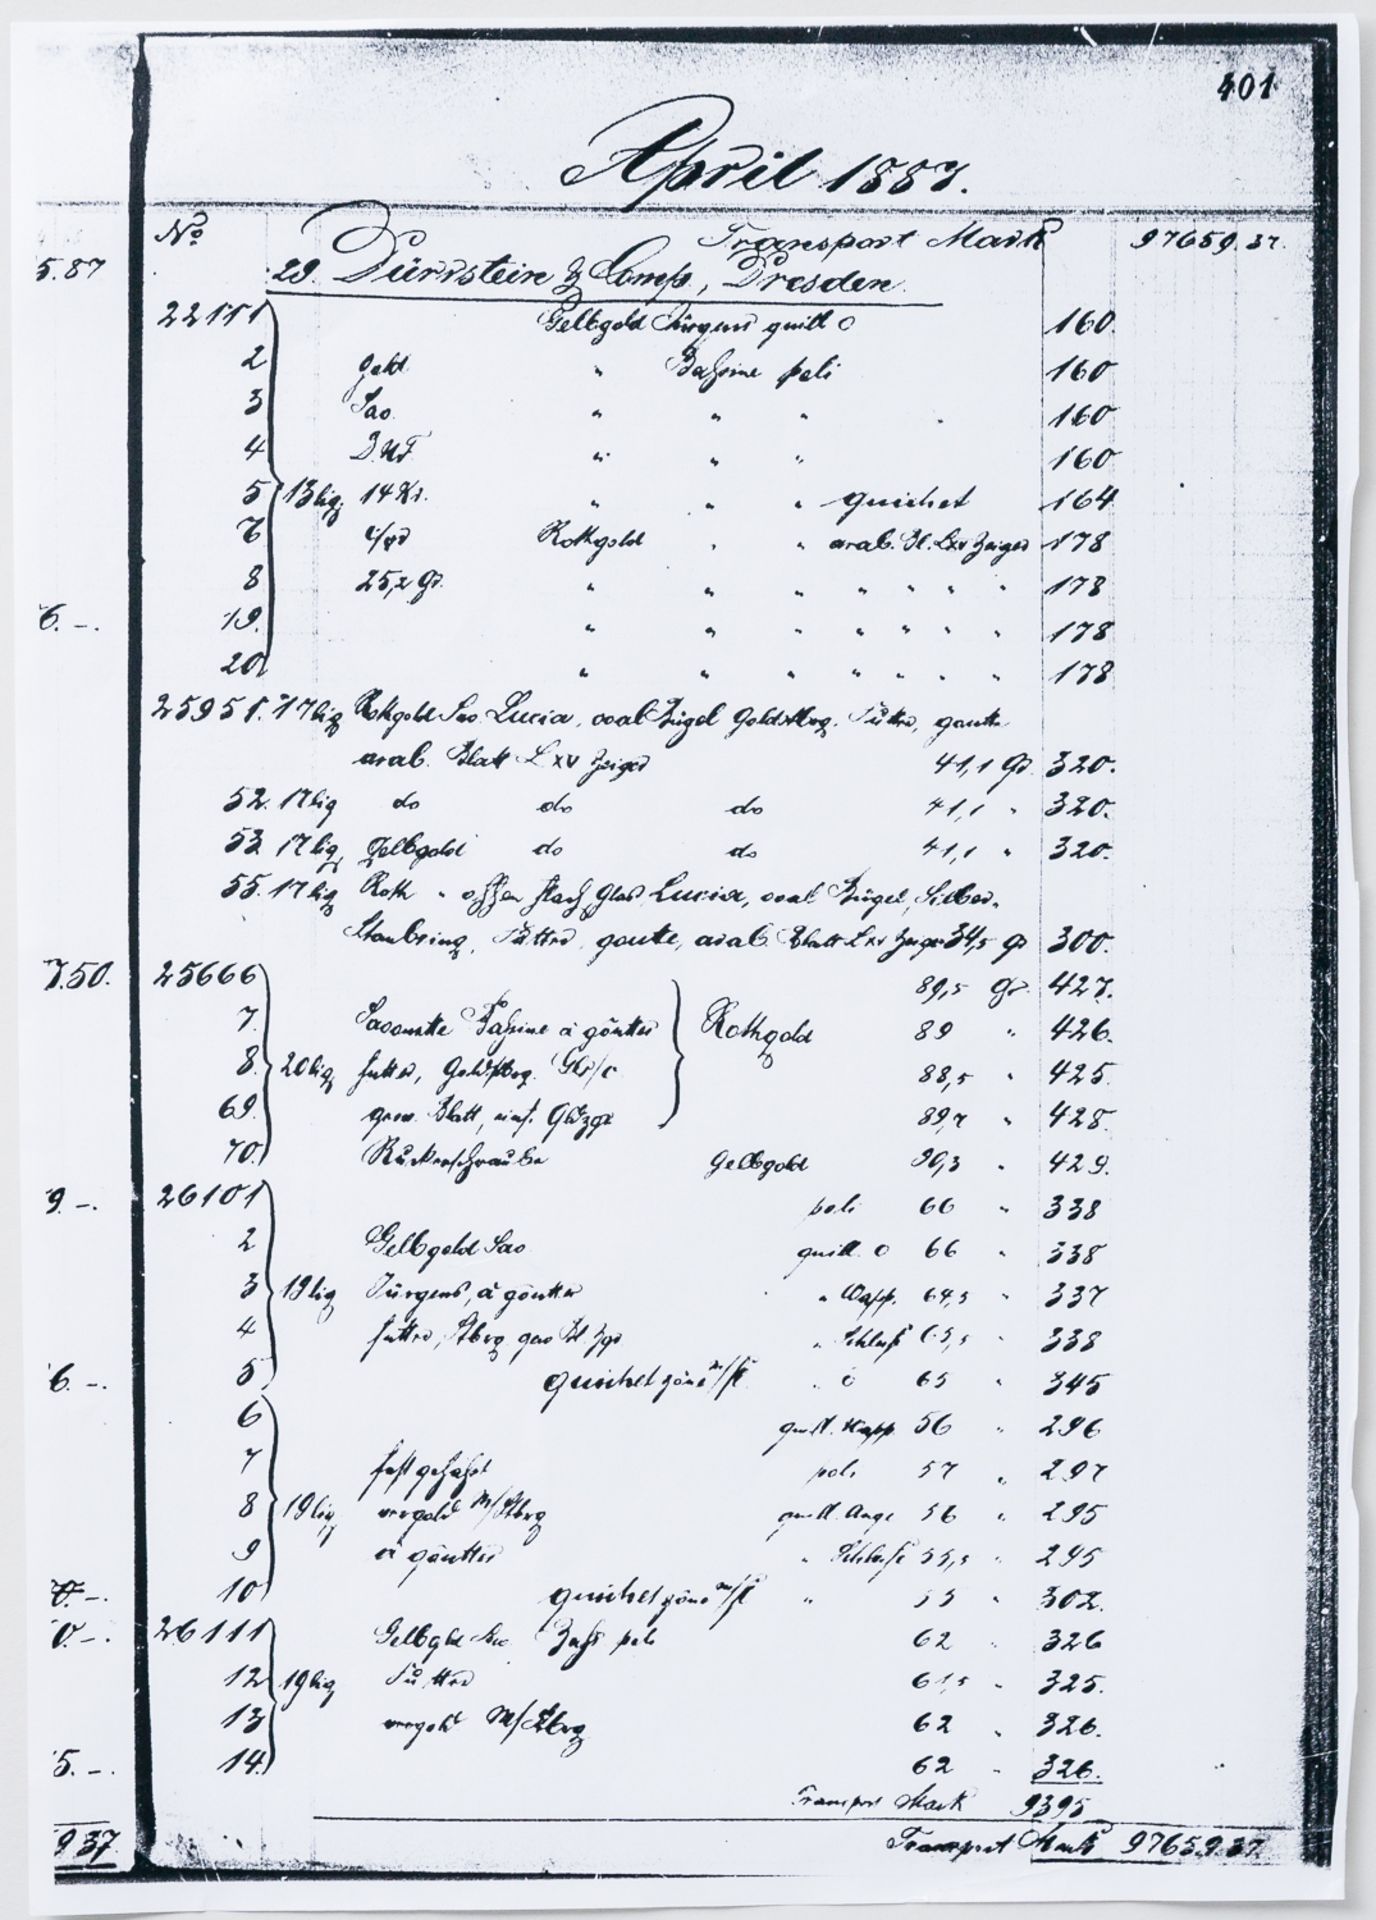 401
April 1887.
No Transport Mark 97659.37.
5.87 29. Dürrstein & Comp., Dresden.
22111 Gelbgold Jürgens guill O 160.
2 Gold " Bassine poli 160
3 Sav. " " " 160
4 D.U.F. " " " 160
5 13lig. 14 Kr. " " " guichet 164
6 Rothgold " " arab. Bl. Lxv Zeiger 178
8 25,2 Gr. " " " " " " " 178
6.-. 19. " " " " " " " 178
20 " " " " " " " 178
25951. 17lig Rothgold Sav. Lucia, oval Bügel Goldstbrg. Füttrd, goutte
arab. Blatt L xv Zeiger 41,1 Gr. 320.
52. 17lig do do do 41,1 " 320.
53. 17lig Gelbgold do do 41,1 " 320.
55. 17lig Roth " offen flach Glas Lucia, oval Bügel, Silber-
Staubring, Füttrd, goutte, arab. Blatt Lxv Zeiger 34,5 Gr 300.
7.50. 25666 89,5 Gr. 427.
7. Savonette Bassine à gouttes Rothgold 89 " 426.
8. 20lig futtrd, Goldstbrg. 88,5 " 425.
69. Blatt, 89,7 " 428.
70. Ruckerschraube Gelbgold 90,3 " 429.
9.-. 26101 poli 66 " 338
2 Gelbgold Sav guill. O 66 " 338
3 19lig Jürgens, à gouttes " Wapp. 64,5 " 337
4 futtrd, Stbrg Bl. Zgr " Schluss 65,5 " 338
6.-. 5 guichet " O 65 " 345
6 guill. Wapp. 56 " 296
7 fest gefasst poli 57 " 297
8 19lig vergold M/Stbrg guill. Auge 56 " 295
9 à gouttes " Schluss 55,5 " 295
0.-. 10 guichet " 55 " 302.
0.-. 26111 Gelbgld Sav Bass poli 62 " 326
12 19lig Füttrd 61,5 " 325.
13 vergold M/Stbrg 62 " 326.
5.-. 14. 62 " 326.
Transport Mark 9395
937 Transport Mark 97659.37.